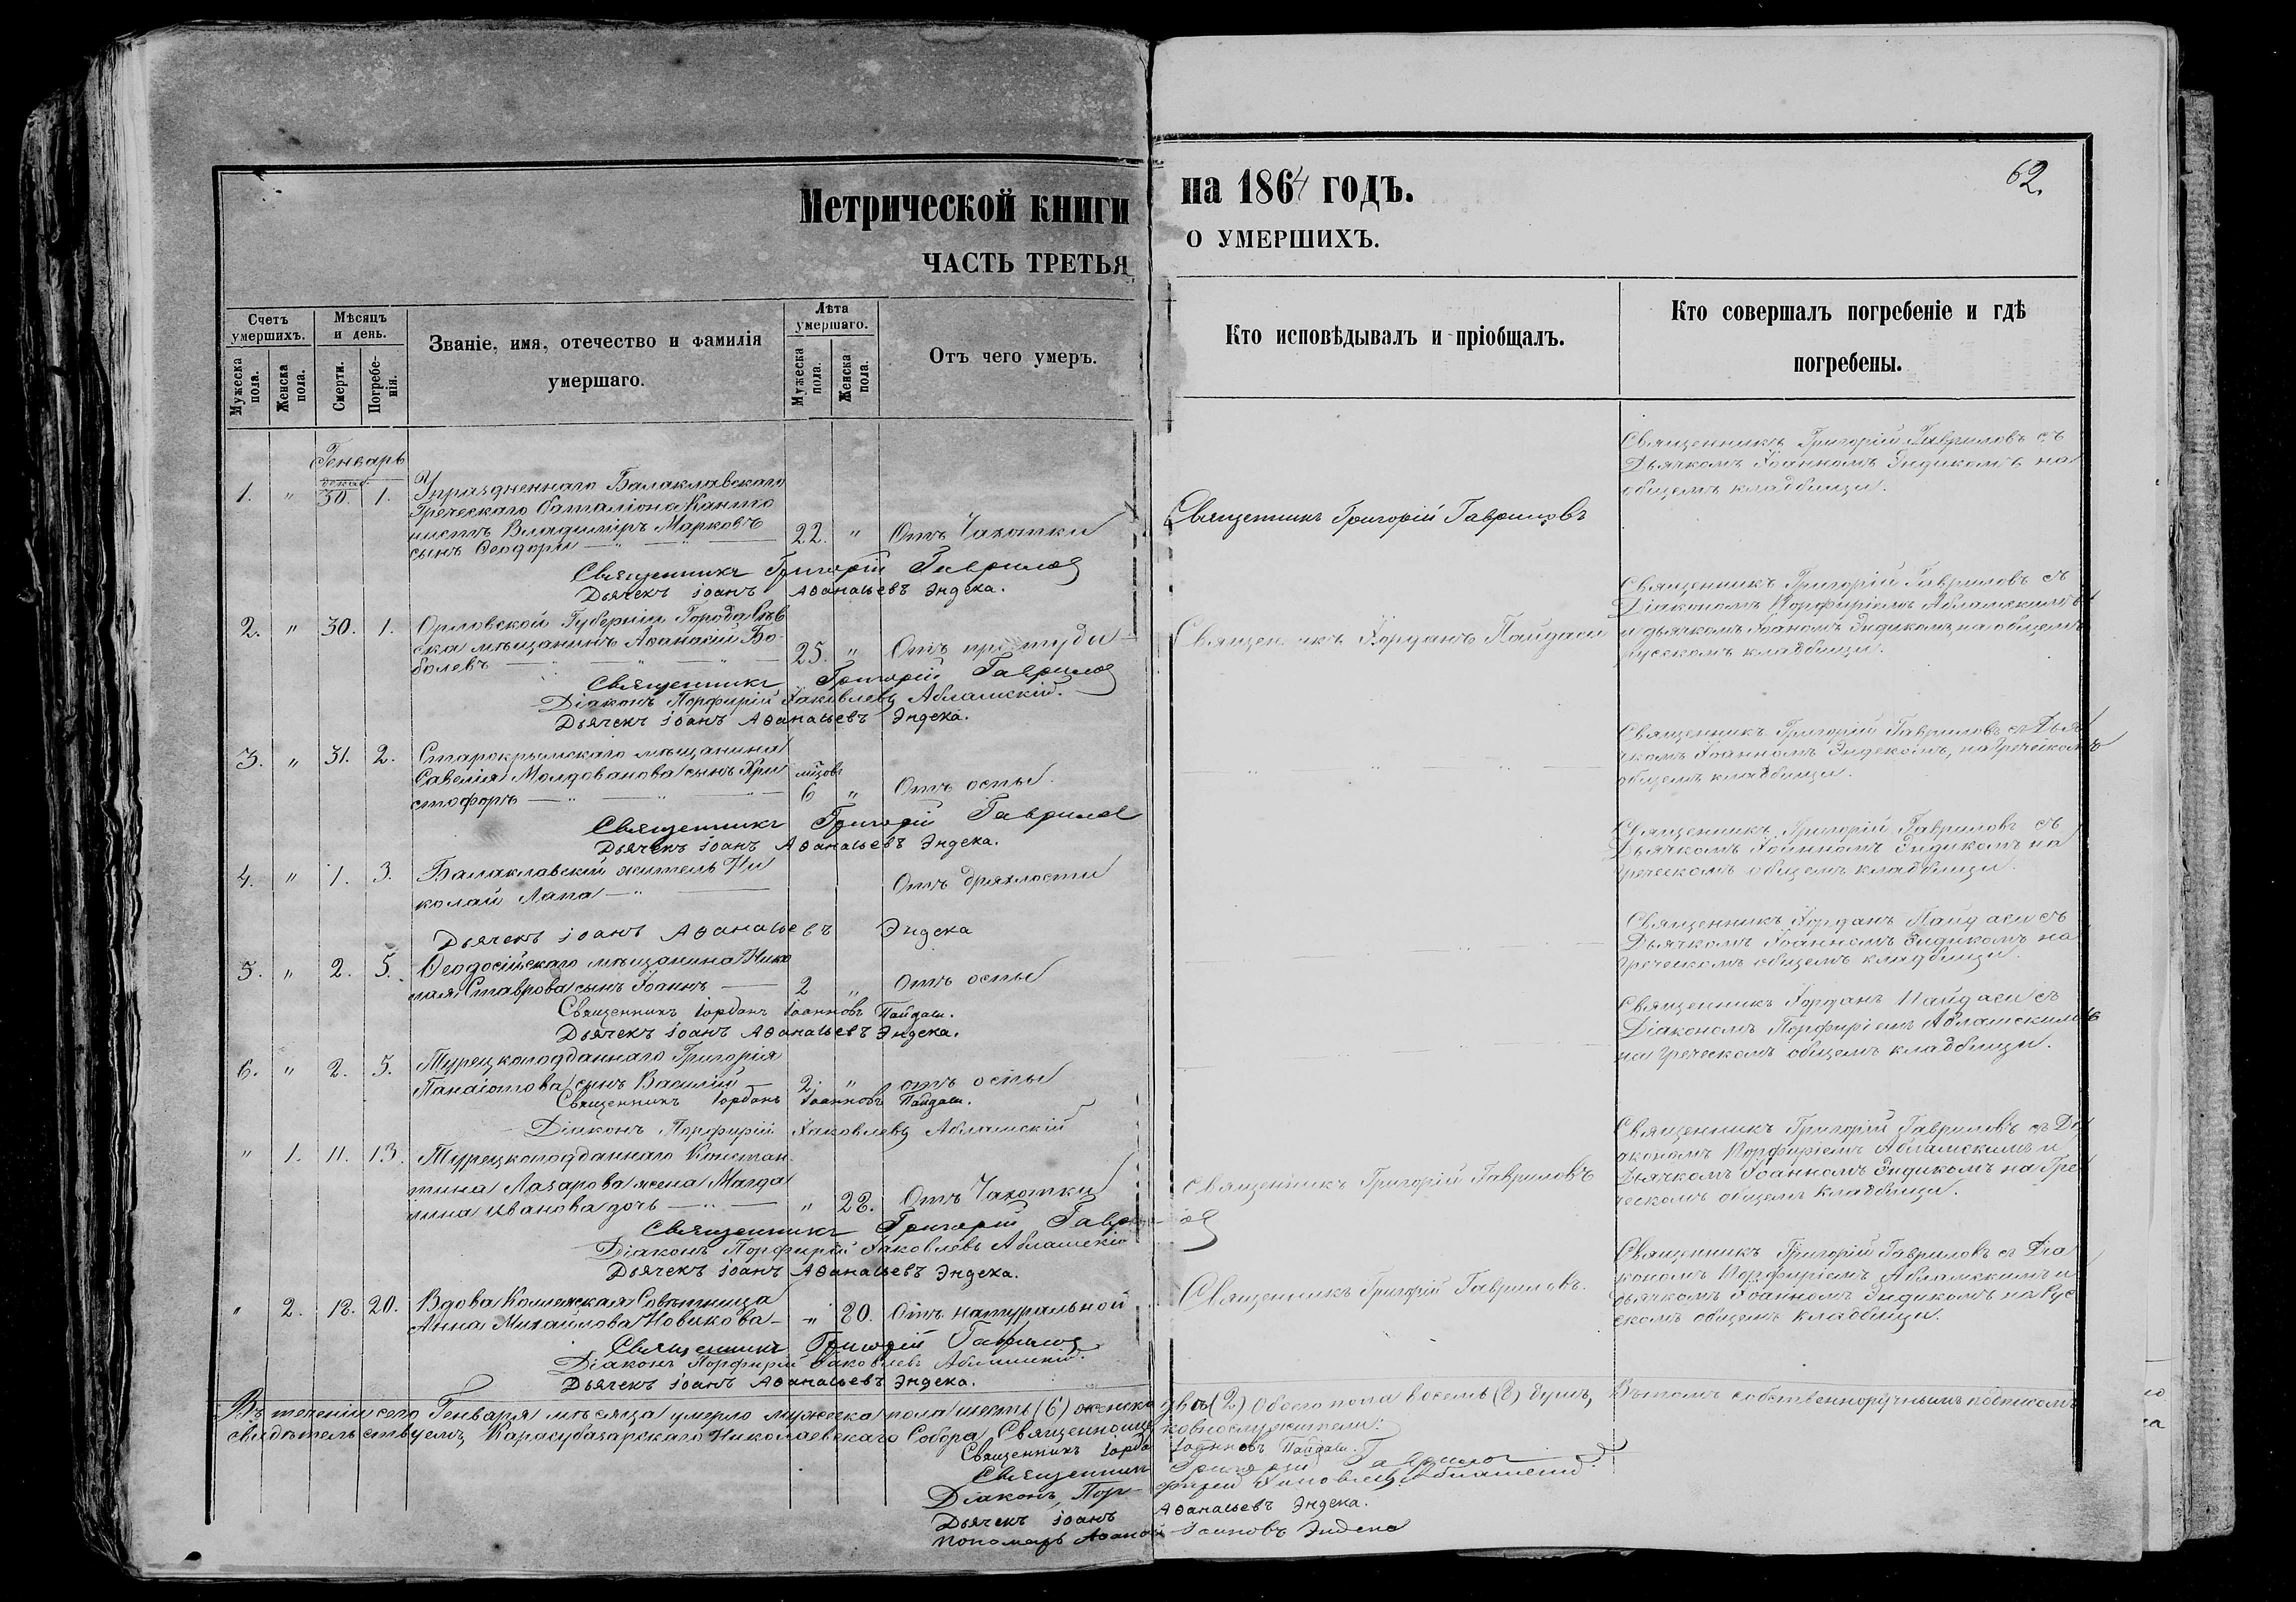 Метрической книги
на 1864 годъ.
62.
ЧАСТЬ ТРЕТЬЯ
О УМЕРШИХЪ.
Счетъ умершихъ.
Мѣсяцъ и день.
Званіе, имя, отечество и фамилія умершаго.
Лѣта умершаго.
Отъ чего умеръ.
Кто исповѣдывалъ и пріобщалъ.
Кто совершалъ погребеніе и гдѣ погребены.
Мужеска пола.
Женска пола.
Смерти.
Погребенія.
Мужеска пола.
Женска пола.
Генварь
декаб.
1. " 30. 1. Упраздненнаго Балаклавскаго
Греческаго баталіона Канто
нистъ Владиміръ Марковъ
сынъ Феодори 22. " Отъ Чахотки
Священникъ Григорій Гавриловъ
Священникъ Григорій Гавриловъ съ
Дьячкомъ Іоанномъ Эндикомъ на
общемъ кладбищи.
Священникъ Григорій Гаврилов
Дьячекъ іоанъ Аѳанасьевъ Эндека.
2. " 30. 1. Орловской Губерніи Города Сѣв
ска мѣщанинъ Аѳанасій Бо-
болевъ 25. " Отъ простуды
Священникъ Іорданъ Пайдаси
Священникъ Григорій Гавриловъ съ
Діакономъ Порфиріемъ Абламскимъ
и дьячкомъ Іоаномъ Эндикомъ, на общемъ
русскомъ кладбищи.
Священникъ Григорій Гаврилов
Діаконъ Порфирій Іаковлевъ Абламскій.
Дьячекъ іоанъ Аѳанасьевъ Эндека.
3. " 31. 2. Старокрымскаго мѣщанина
Савелія Молдованова сынъ Хри
стофоръ мѣсцовъ 6 " Отъ оспы.
Священникъ Григорій Гавриловъ съ Дья
чкомъ Іоанномъ Эндекомъ, на Греческомъ
общемъ кладбищи.
Священникъ Григорій Гаврилов
Дьячекъ іоанъ Аѳанасьевъ Эндека.
4. " 1. 3. Балаклавскій житель Ни
колай Лапа Отъ дряхлости
Священникъ Григорій Гавриловъ съ
Дьячкомъ Іоанномъ Эндикомъ на
Греческомъ общемъ кладбищи.
Дьячекъ іоанъ Аѳанасьевъ Эндека
5. " 2. 5. Ѳеодосійскаго мѣщанина Нико
лая Ставрова сынъ Іоаннъ 2 " отъ оспы
Священникъ Іорданъ Пайдаси съ
Дьячкомъ Іоанномъ Эндикомъ на
Греческомъ общемъ кладбищи.
Священникъ Іорданъ Іоанновъ Пайдаси.
Дьячекъ іоанъ Аѳанасьевъ Эндека.
6. " 2. 5. Турецкоподданнаго Григорія
Панаіотова сынъ Василій 2. " отъ оспы
Священникъ Іорданъ Пайдаси съ
Діакономъ Порфиріемъ Абламскимъ
на Греческомъ общемъ кладбищи.
Священникъ Іорданъ Іоанновъ Пайдаси.
Діаконъ Порфирій Іаковлевъ Абламскій
" 1. 11. 13. Турецкоподданнаго Констан
тина Лазарова жена Магда
лина Иванова дочь " 22. Отъ Чахотки
Священникъ Григорій Гавриловъ
Священникъ Григорій Гавриловъ съ Ді
акономъ Порфиріемъ Абламскимъ и
Дьячкомъ Іоанномъ Эндикомъ на Гре
ческомъ общемъ кладбищи.
Священникъ Григорій Гаврилов
Діаконъ Порфирій Іаковлевъ Абламскій
Дьячекъ іоанъ Аѳанасьевъ Эндека.
" 2. 18. 20. Вдова Коллежская Совѣтница
Анна Михайлова Новикова " 80. Отъ натуральной
Священникъ Григорій Гавриловъ.
Священникъ Григорій Гавриловъ съ Діа
кономъ Порфиріемъ Абламскимъ и
дьячкомъ Іоанномъ Эндикомъ на Рус
скомъ общемъ кладбищи.
Священникъ Григорій Гаврилов
Діаконъ Порфирій Іаковлевъ Абламскій.
Дьячекъ іоанъ Аѳанасьевъ Эндека.
Въ теченіи сего Генваря мѣсяца умерло мужеска пола шесть (6) женска двѣ (2) Обоего пола восемь (8) душъ, Вътомъ собственноручнымъ подписомъ
свидѣтельствуемъ, Карасубазарскаго Николаевскаго Собора, Священноцерковнослужители:
Священникъ Іорданъ Іоанновъ Пайдаси.
Священникъ Григорій Гаврилов
Діаконъ Порфирій Іаковлевъ Абламскій.
Дьячекъ іоанъ Аѳанасьевъ Эндека.
Пономарь Аѳанасій Іоановъ Эндека